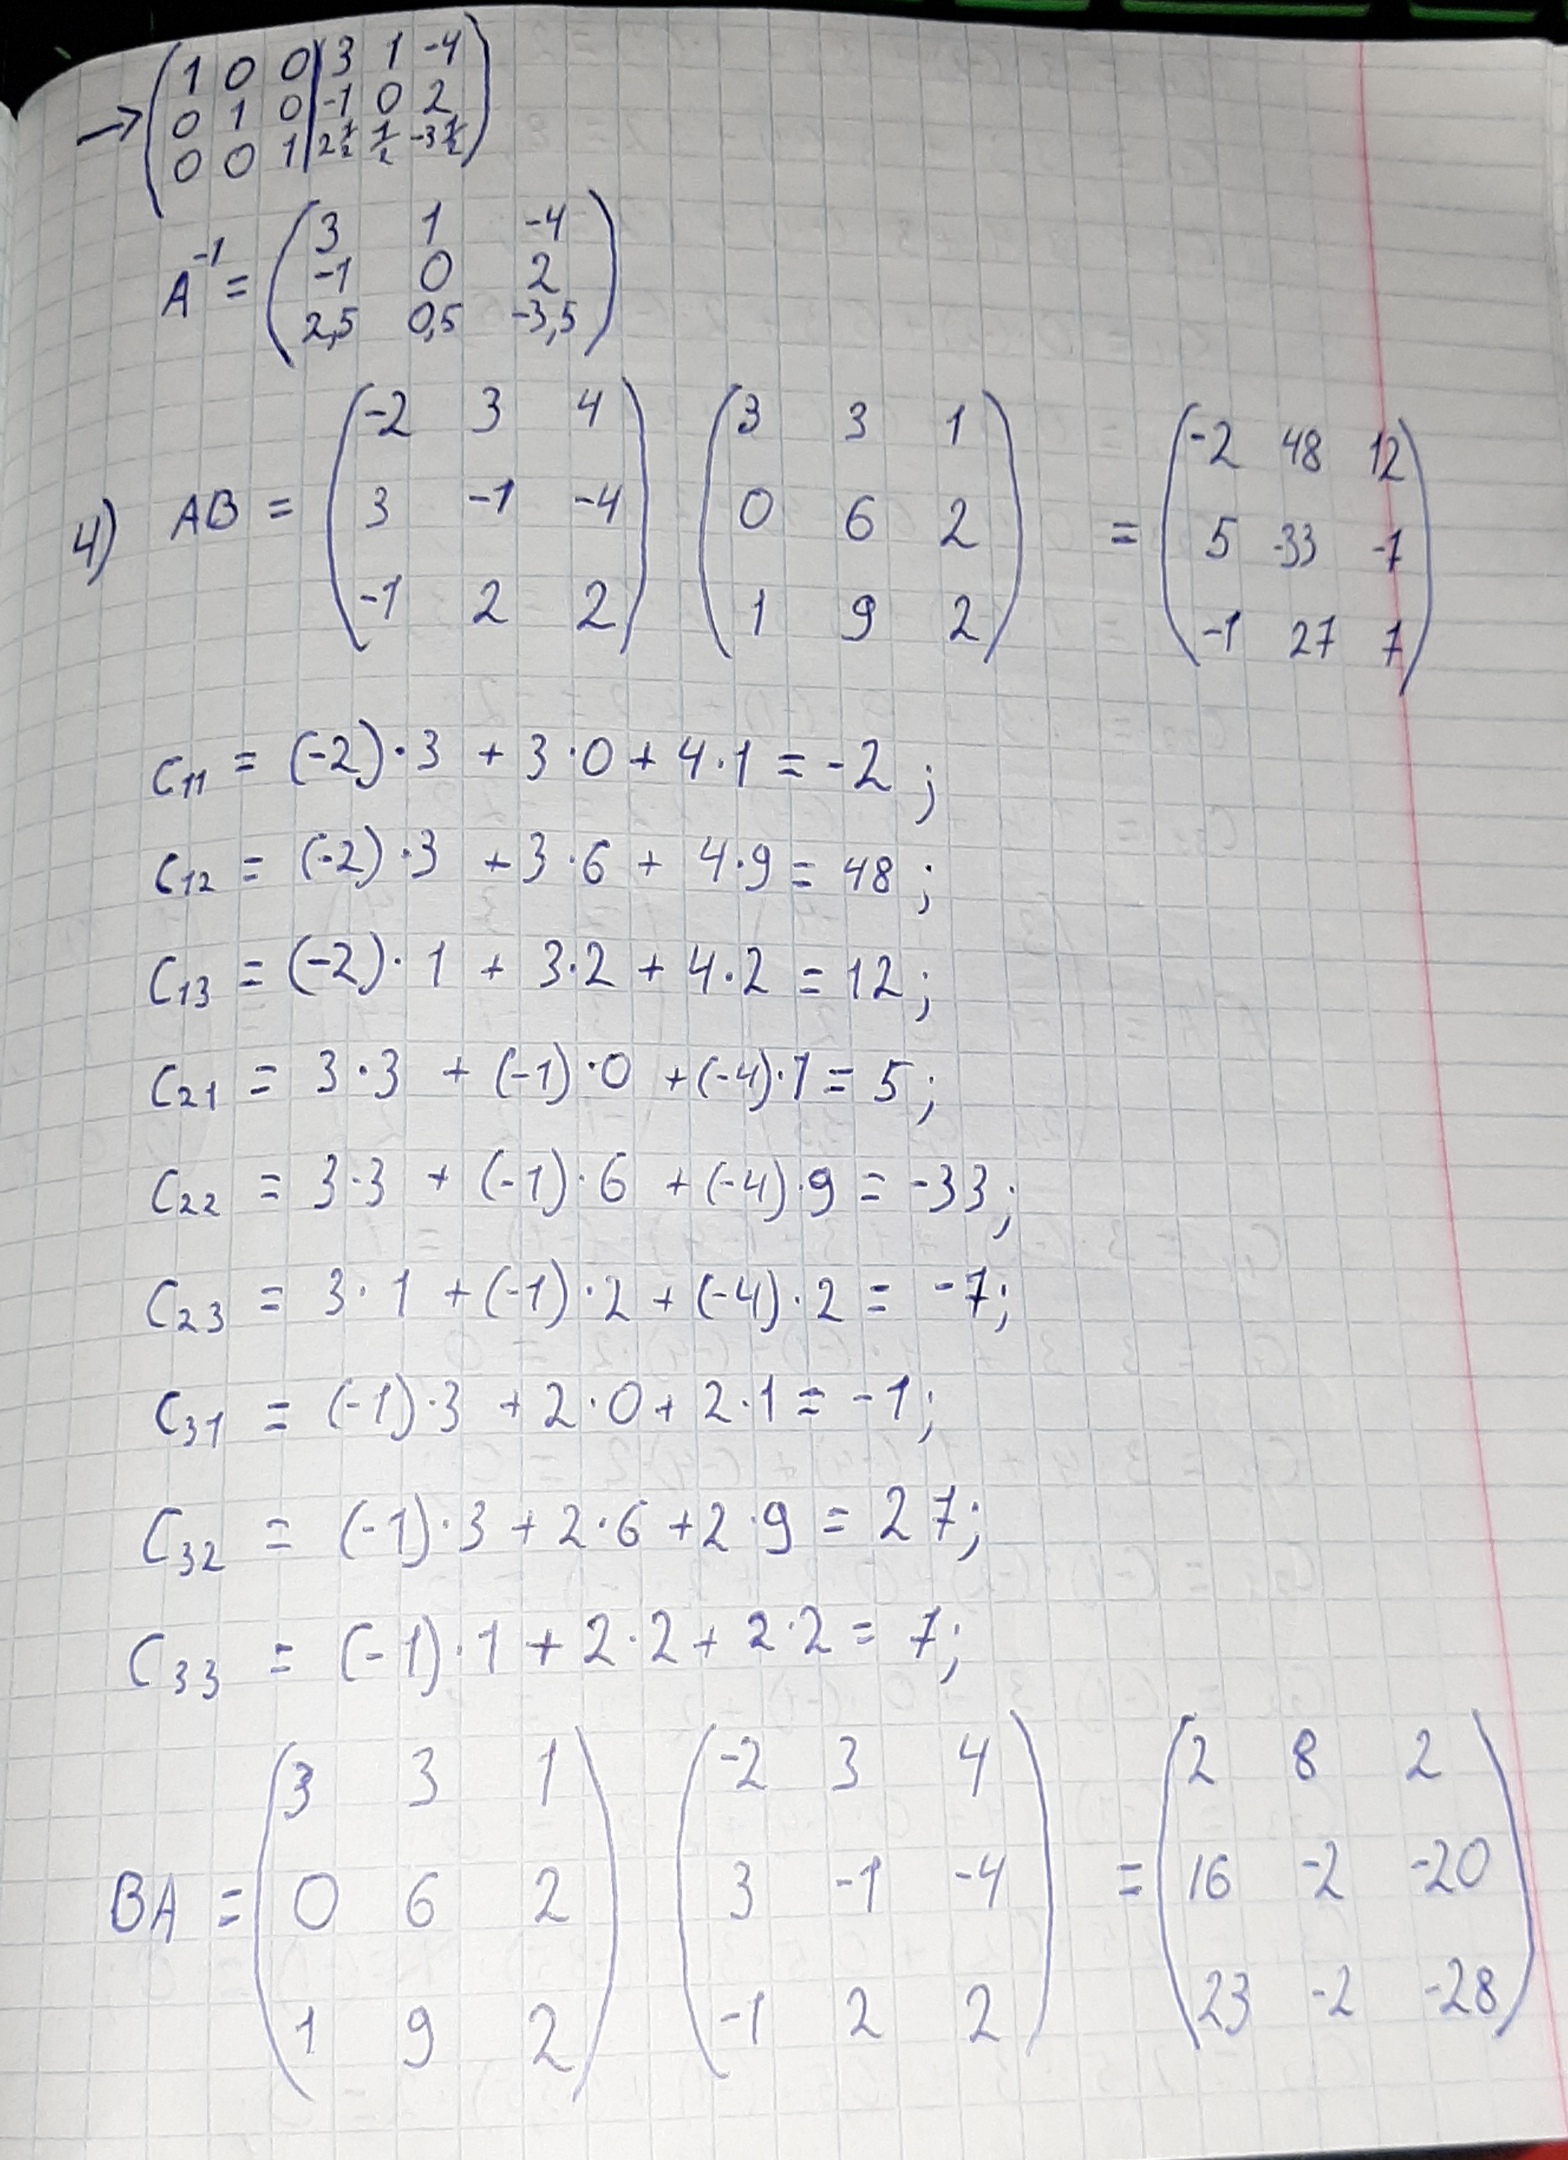 → (1 0 0 | 3 1 -4)
(0 1 0 | -1 0 2)
(0 0 1 | 2 1/2 1/2 -3 1/2)
A⁻¹ = (3 1 -4)
(-1 0 2)
(2,5 0,5 -3,5)
4) AB = (-2 3 4) (3 3 1) = (-2 48 12)
(3 -1 -4) (0 6 2) (5 -33 -7)
(-1 2 2) (1 9 2) (-1 27 7)
C₁₁ = (-2)·3 + 3·0 + 4·1 = -2;
C₁₂ = (-2)·3 + 3·6 + 4·9 = 48;
C₁₃ = (-2)·1 + 3·2 + 4·2 = 12;
C₂₁ = 3·3 + (-1)·0 + (-4)·1 = 5;
C₂₂ = 3·3 + (-1)·6 + (-4)·9 = -33;
C₂₃ = 3·1 + (-1)·2 + (-4)·2 = -7;
C₃₁ = (-1)·3 + 2·0 + 2·1 = -1;
C₃₂ = (-1)·3 + 2·6 + 2·9 = 27;
C₃₃ = (-1)·1 + 2·2 + 2·2 = 7;
BA = (3 3 1) (-2 3 4) = (2 8 2)
(0 6 2) (3 -1 -4) (16 -2 -20)
(1 9 2) (-1 2 2) (23 -2 -28)